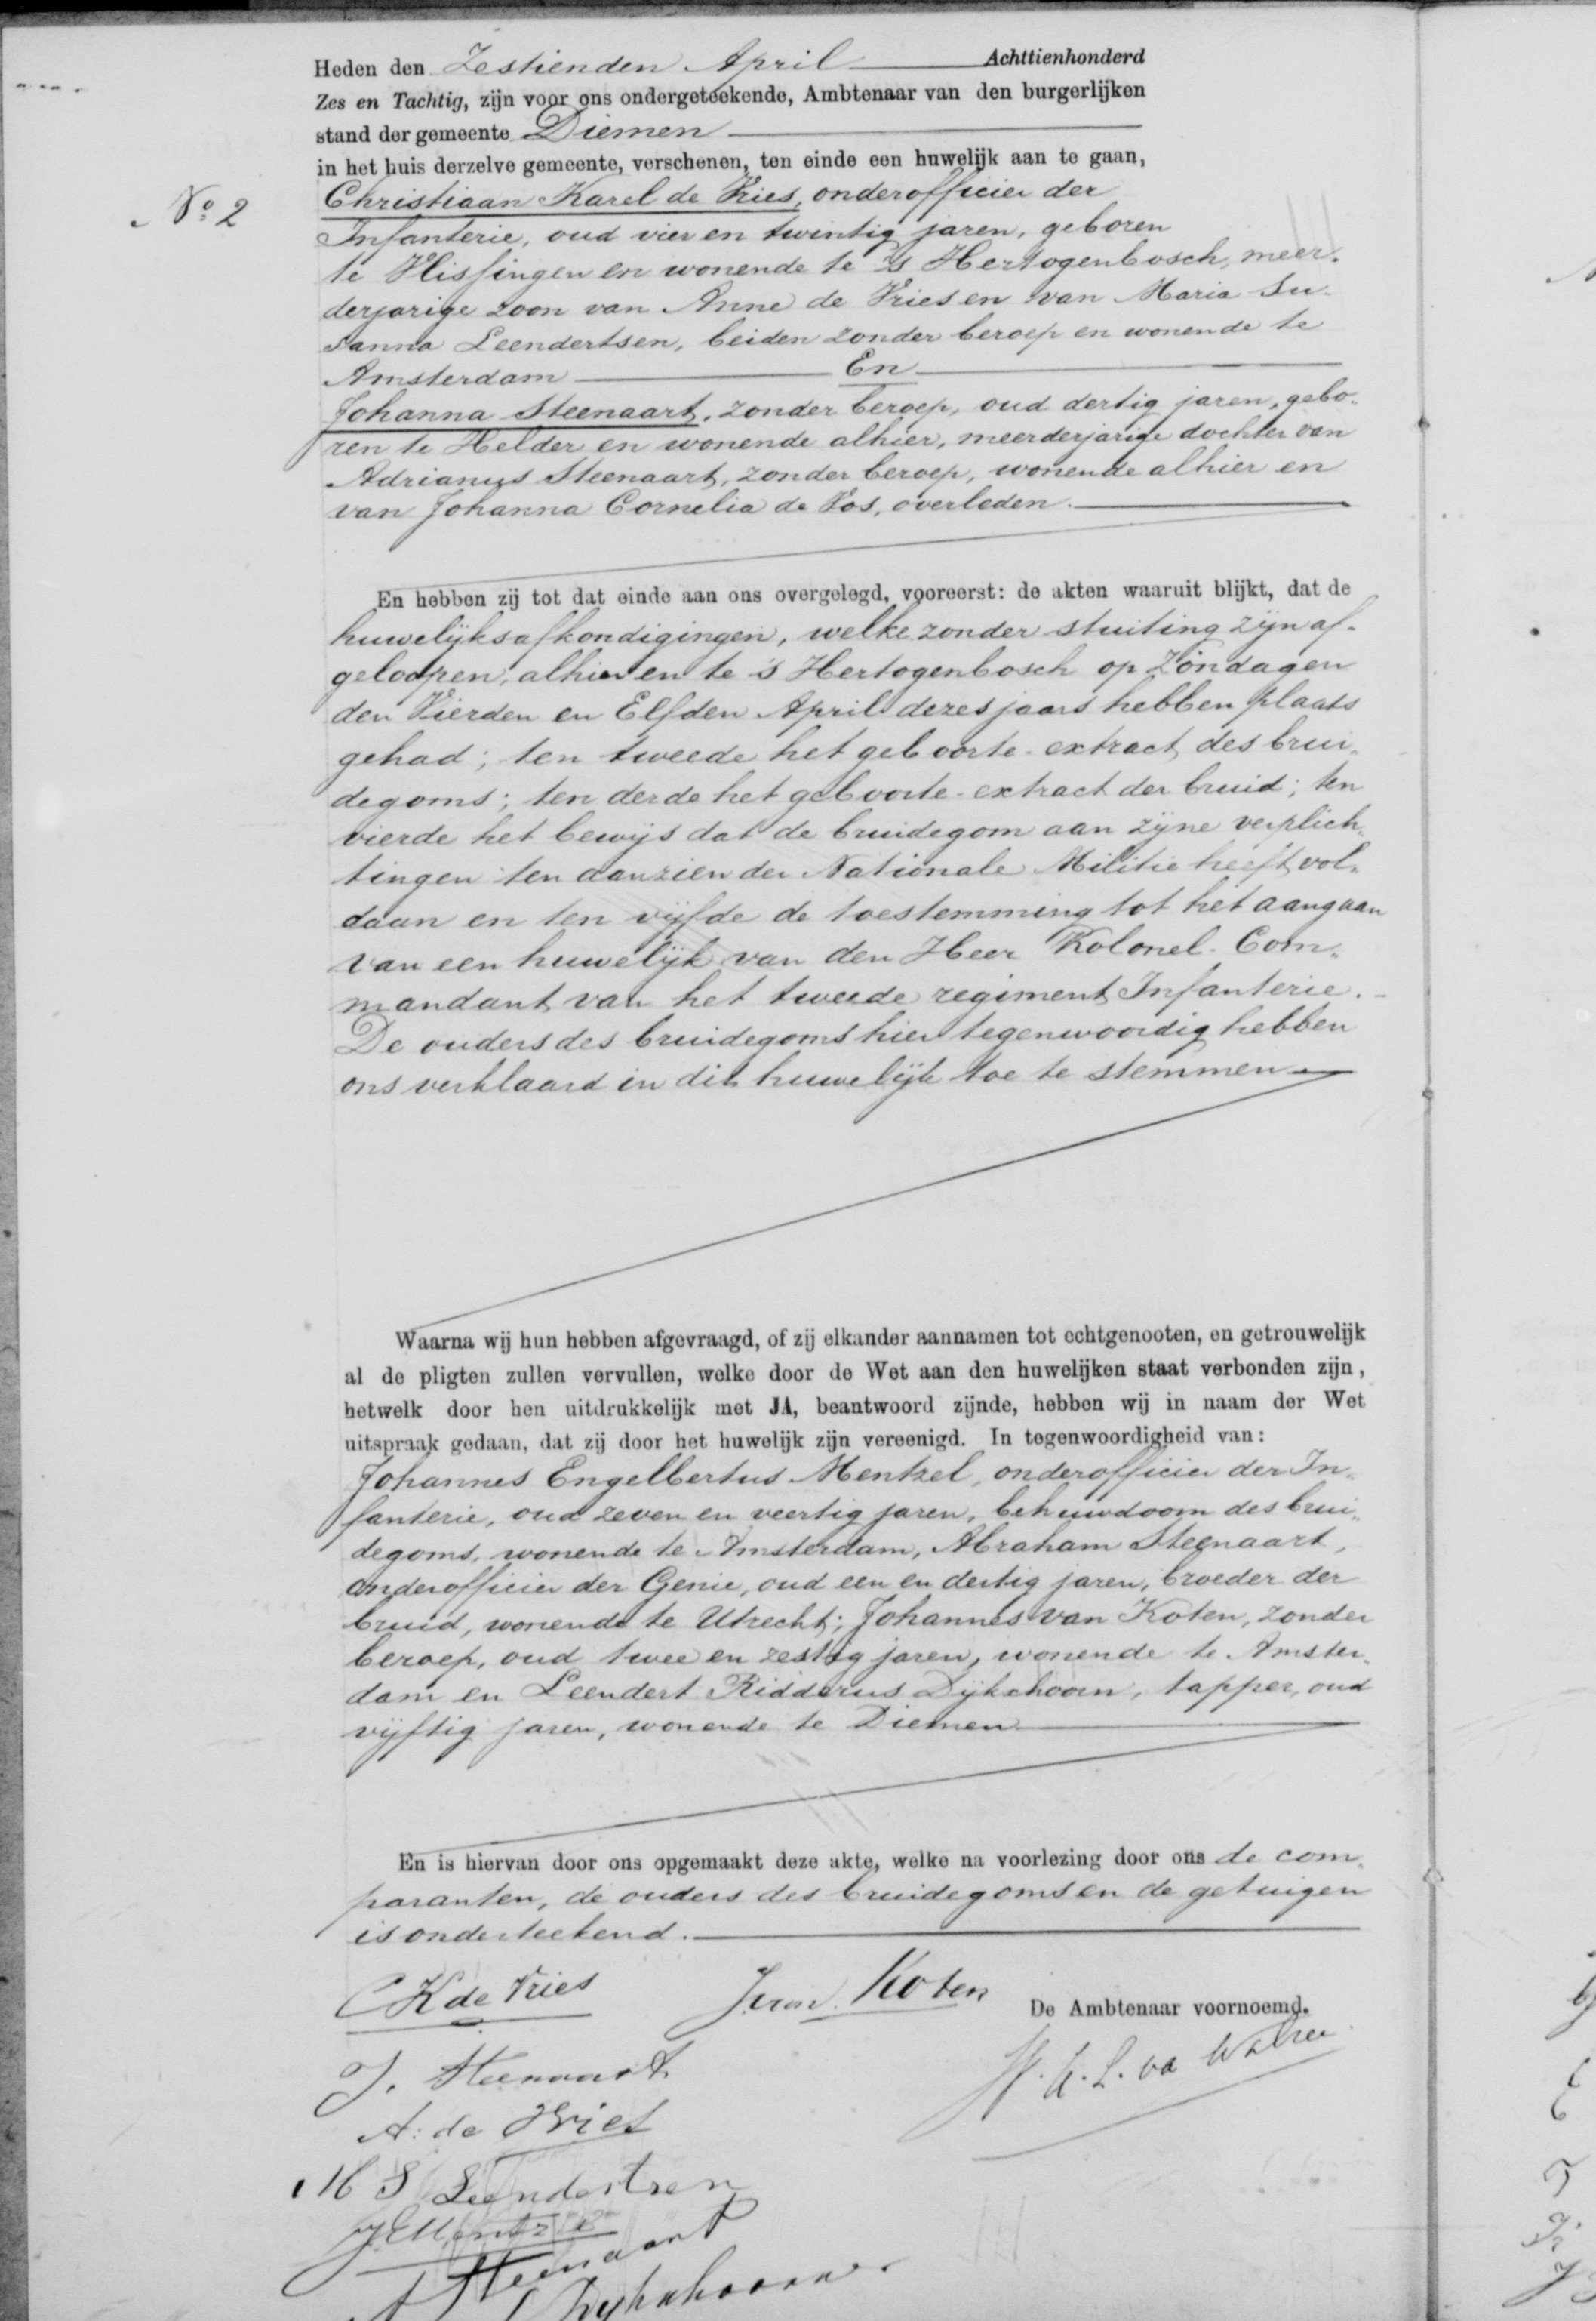 Heden den Zestienden April Achttienhonderd
Zes en Tachtig, zijn voor ons ondergeteekende, Ambtenaar van den burgerlijken
stand der gemeente Diemen
in het huis derzelve gemeente, verschenen, ten einde een huwelijk aan te gaan,
No. 2
Christiaan Karel de Vries, onderofficier der
Infanterie, oud vier en twintig jaren, geboren
te Vlissingen en wonende te 's Hertogenbosch, meer-
derjarige zoon van Anne de Vries en van Maria Su-
sanna Leendertsen, beiden zonder beroep en wonende te
Amsterdam En
Johanna Steenaart, zonder beroep, oud dertig jaren, gebo-
ren te Helder en wonende alhier, meerderjarige dochter van
Adrianus Steenaart, zonder beroep, wonende alhier en
van Johanna Cornelia de Vos, overleden.
En hebben zij tot dat einde aan ons overgelegd, vooreerst: de akten waaruit blijkt, dat de
huwelijksafkondigingen, welke zonder stuiting zijn af-
geloopen, alhier en te 's Hertogenbosch op Zondagen
den Vierden en Elfden April dezes jaars hebben plaats
gehad; ten tweede het geboorte-extract des brui-
degoms; ten derde het geboorte-extract der bruid; ten
vierde het bewijs dat de bruidegom aan zijne verplich-
tingen ten aanzien der Nationale Militie heeft vol-
daan en ten vijfde de toestemming tot het aangaan
van een huwelijk van den Heer Kolonel-Com-
mandant van het tweede regiment Infanterie.
De ouders des bruidegoms hier tegenwoordig hebben
ons verklaard in dit huwelijk toe te stemmen
Waarna wij hun hebben afgevraagd, of zij elkander aannamen tot echtgenooten, en getrouwelijk
al de pligten zullen vervullen, welke door de Wet aan den huwelijken staat verbonden zijn,
hetwelk door hen uitdrukkelijk met JA, beantwoord zijnde, hebben wij in naam der Wet
uitspraak gedaan, dat zij door het huwelijk zijn vereenigd. In tegenwoordigheid van:
Johannes Engelbertus Mentzel, onderofficier der In-
fanterie, oud zeven en veertig jaren, behuwdoom des brui-
degoms, wonende te Amsterdam, Abraham Steenaart,
onderofficier der Genie, oud een en dertig jaren, broeder der
bruid, wonende te Utrecht; Johannes van Koten, zonder
beroep, oud twee en zestig jaren, wonende te Amster-
dam en Leendert Ridderus Dijkshoorn, tapper, oud
vijftig jaren, wonende te Diemen
En is hiervan door ons opgemaakt deze akte, welke na voorlezing door ons de com-
paranten, de ouders des bruidegoms en de getuigen
is onderteekend.
CK de Vries
Koten
De Ambtenaar voornoemd.
J. Steenaart
A: de Vries
M S Leendertsen
JE Mentzel
A Steenaart
Dijkshoorn